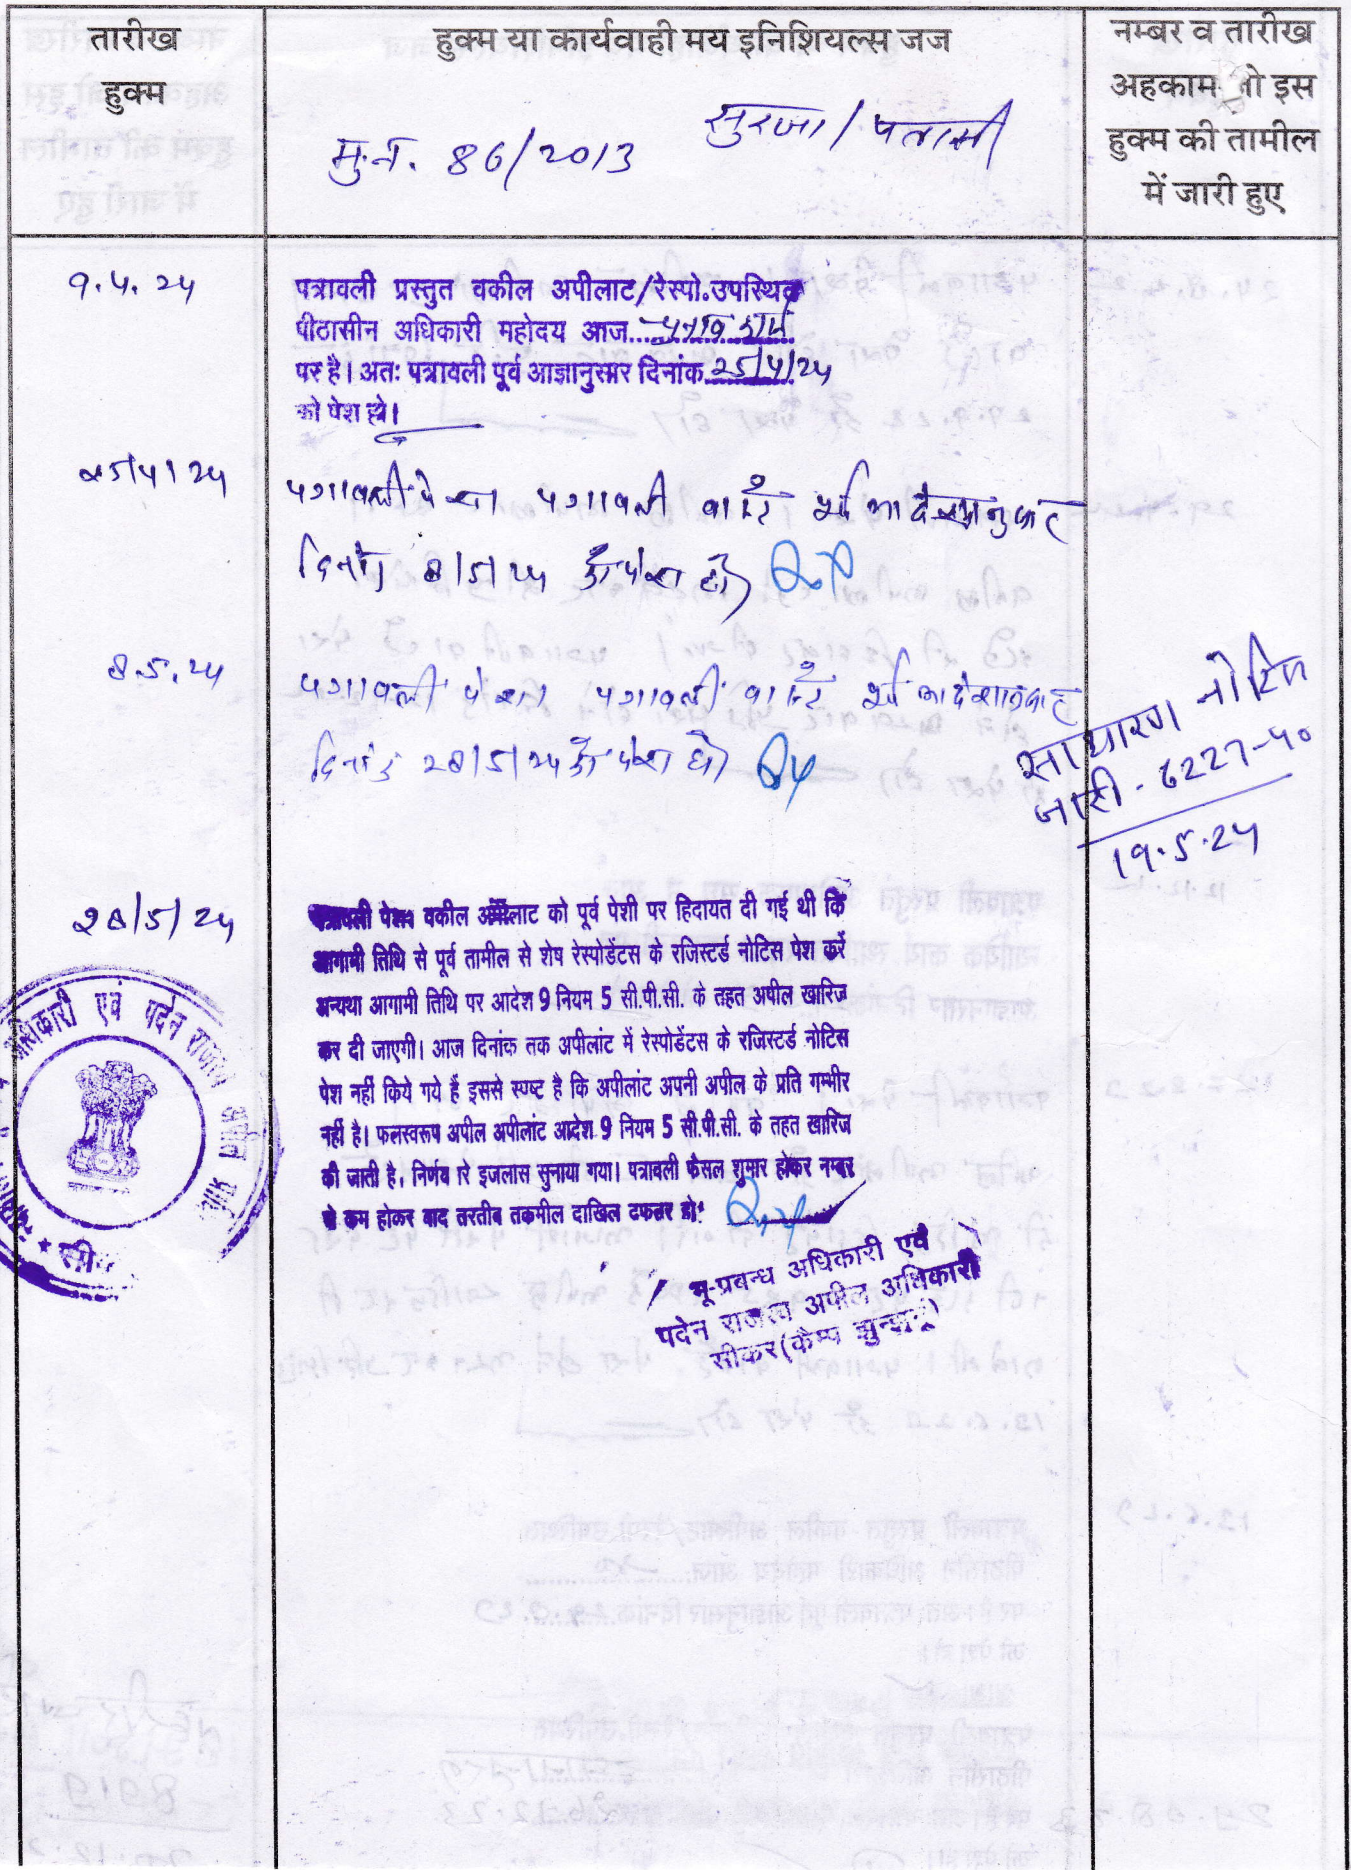 तारीख
हुक्म
हुक्म या कार्यवाही मय इनिशियल्स जज
मु.न. 86/2013
सुरजा/पतासी
नम्बर व तारीख
अहकाम जो इस
हुक्म की तामील
में जारी हुए
9.4.24
पत्रावली प्रस्तुत वकील अपीलाट/रेस्पो.उपस्थित
पीठासीन अधिकारी महोदय आज... चुनाव कार्य
पर है। अतः पत्रावली पूर्व आज्ञानुसार दिनांक 25/4/24
को पेश हो।
25/4/24
पत्रावली पेश। पत्रावली वास्ते पूर्व आदेशानुसार
दिनांक 8/5/24 को पेश हो।
8.5.24
पत्रावली पेश। पत्रावली वास्ते पूर्व आदेशानुसार
दिनांक 28/5/24 को पेश हो।
साधारण नोटिस
जारी - 6227-40
19.5.24
28/5/24
पत्रावली पेश। वकील अपीलाट को पूर्व पेशी पर हिदायत दी गई थी कि
आगामी तिथि से पूर्व तामील से शेष रेस्पोडेंटस के रजिस्टर्ड नोटिस पेश करें
अन्यथा आगामी तिथि पर आदेश 9 नियम 5 सी.पी.सी. के तहत अपील खारिज
कर दी जाएगी। आज दिनांक तक अपीलांट में रेस्पोडेंटस के रजिस्टर्ड नोटिस
पेश नहीं किये गये हैं इससे स्पष्ट है कि अपीलांट अपनी अपील के प्रति गम्भीर
नहीं है। फलस्वरूप अपील अपीलांट आदेश 9 नियम 5 सी.पी.सी. के तहत खारिज
की जाती है, निर्णय सरे इजलास सुनाया गया। पत्रावली फैसल शुमार होकर नम्बर
से कम होकर बाद तरतीब तकमील दाखिल दफ्तर हो।
भू-प्रबन्ध अधिकारी एवं
पदेन राजस्व अपील अधिकारी
सीकर(कैम्प झुन्झुनूं)
अधिकारी एवं पदेन राजस्व अपील
सी